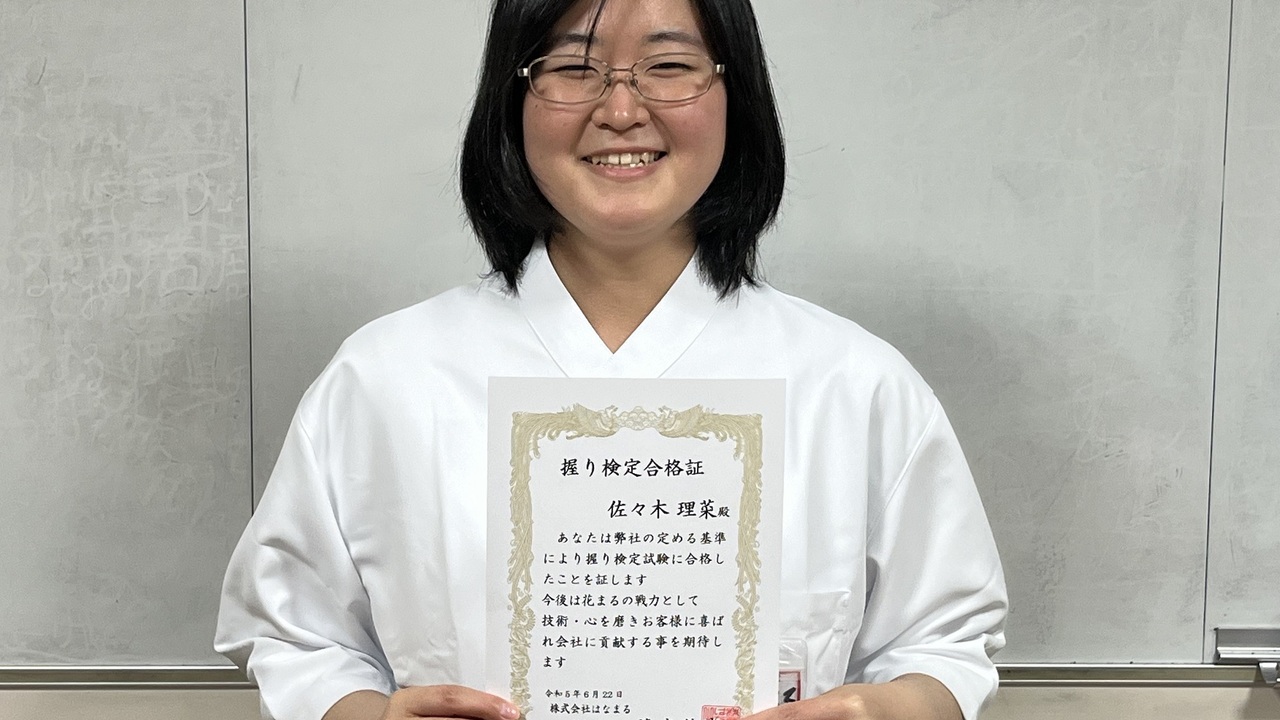 握り検定合格証
佐々木 理菜殿
あなたは弊社の定める基準
により握り検定試験に合格し
たことを証します
今後は花まるの戦力として
技術・心を磨きお客様に喜ば
れ会社に貢献する事を期待し
ます
令和5年6月22日
株式会社はなまる